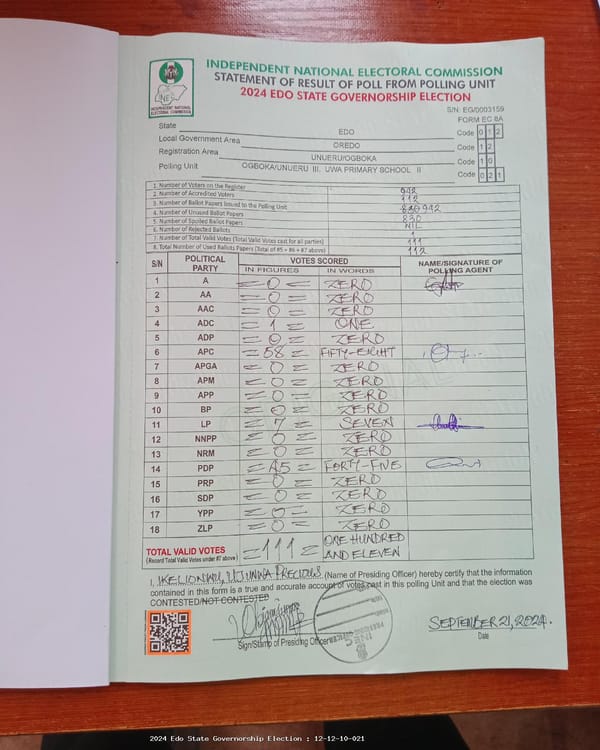 INDEPENDENT NATIONAL ELECTORAL COMMISSION
STATEMENT OF RESULT OF POLL FROM POLLING UNIT
2024 EDO STATE GOVERNORSHIP ELECTION
INEC
INDEPENDENT NATIONAL ELECTORAL COMMISSION
S/N: EG/0003159
FORM EC 8A
State EDO Code 0 1 2
Local Government Area OREDO Code 1 2
Registration Area UNUERU/OGBOKA Code 1 0
Polling Unit OGBOKA/UNUERU III. UWA PRIMARY SCHOOL II Code 0 2 1
1. Number of Voters on the Register 942
2. Number of Accredited Voters 112
3. Number of Ballot Papers Issued to the Polling Unit 942
4. Number of Unused Ballot Papers 830
5. Number of Spoiled Ballot Papers NIL
6. Number of Rejected Ballots 1
7. Number of Total Valid Votes (Total Valid Votes cast for all parties) 111
8. Total Number of Used Ballots Papers (Total of #5 + #6 + #7 above) 112
S/N POLITICAL PARTY VOTES SCORED NAME/SIGNATURE OF POLLING AGENT
IN FIGURES IN WORDS
1 A =0= ZERO
2 AA =0= ZERO
3 AAC =0= ZERO
4 ADC =1= ONE
5 ADP =0= ZERO
6 APC =58= FIFTY-EIGHT
7 APGA =0= ZERO
8 APM =0= ZERO
9 APP =0= ZERO
10 BP =0= ZERO
11 LP =7= SEVEN
12 NNPP =0= ZERO
13 NRM =0= ZERO
14 PDP =45= FORTY-FIVE
15 PRP =0= ZERO
16 SDP =0= ZERO
17 YPP =0= ZERO
18 ZLP =0= ZERO
TOTAL VALID VOTES =111= ONE HUNDRED
(Record Total Valid Votes under #7 above) AND ELEVEN
I, PRECIOUS (Name of Presiding Officer) hereby certify that the information
contained in this form is a true and accurate account of votes cast in this polling Unit and that the election was
CONTESTED/NOT CONTESTED
SEPTEMBER 21, 2024.
Sign/Stamp of Presiding Officer Date
INEC
2024 Edo State Governorship Election : 12-12-10-021